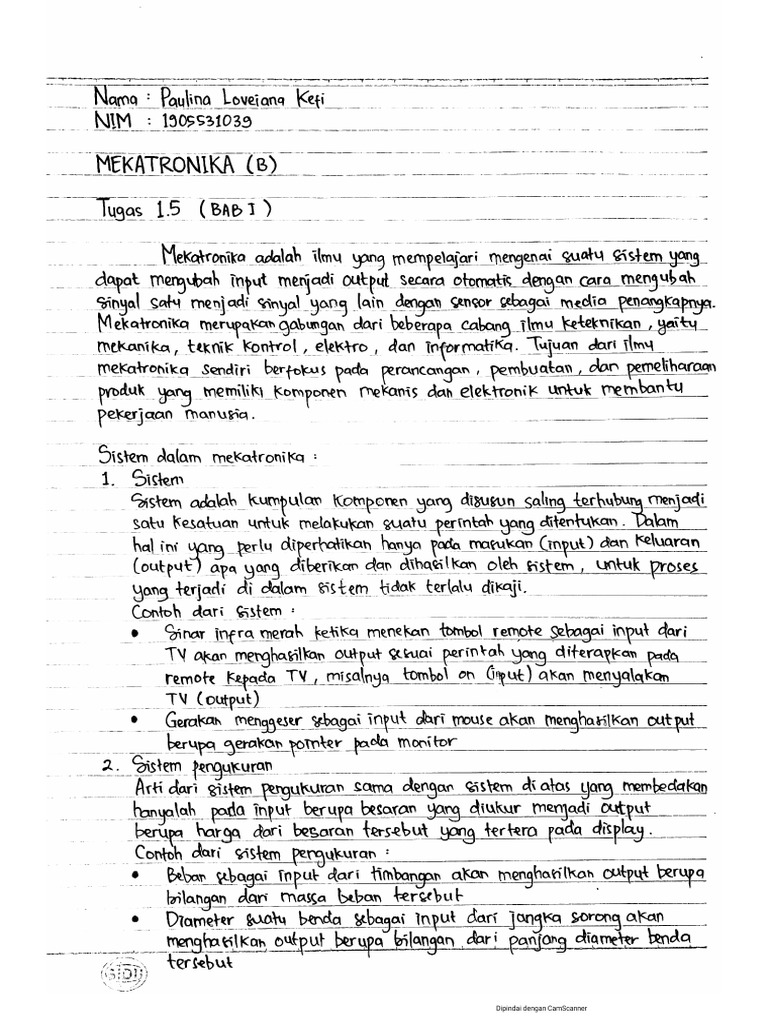 Nama : Paulina Loveiana Kefi
NIM : 1905531039
MEKATRONIKA (B)
Tugas 1.5 (BAB I)
Mekatronika adalah ilmu yang mempelajari mengenai suatu sistem yang
dapat mengubah input menjadi output secara otomatis dengan cara mengubah
sinyal satu menjadi sinyal yang lain dengan sensor sebagai media penangkapnya.
Mekatronika merupakan gabungan dari beberapa cabang ilmu keteknikan, yaitu
mekanika, teknik kontrol, elektro, dan informatika. Tujuan dari ilmu
mekatronika sendiri berfokus pada perancangan, pembuatan, dan pemeliharaan
produk yang memiliki komponen mekanis dan elektronik untuk membantu
pekerjaan manusia.
Sistem dalam mekatronika :
1. Sistem
Sistem adalah kumpulan komponen yang disusun saling terhubung menjadi
satu kesatuan untuk melakukan suatu perintah yang ditentukan. Dalam
hal ini yang perlu diperhatikan hanya pada masukan (input) dan keluaran
(output) apa yang diberikan dan dihasilkan oleh sistem, untuk proses
yang terjadi di dalam sistem tidak terlalu dikaji.
Contoh dari sistem :
• Sinar infra merah ketika menekan tombol remote sebagai input dari
TV akan menghasilkan output sesuai perintah yang diterapkan pada
remote kepada TV, misalnya tombol on (input) akan menyalakan
TV (output)
• Gerakan menggeser sebagai input dari mouse akan menghasilkan output
berupa gerakan pointer pada monitor
2. Sistem pengukuran
Arti dari sistem pengukuran sama dengan sistem di atas yang membedakan
hanyalah pada input berupa besaran yang diukur menjadi output
berupa harga dari besaran tersebut yang tertera pada display.
Contoh dari sistem pengukuran :
• Beban sebagai input dari timbangan akan menghasilkan output berupa
bilangan dari massa beban tersebut
• Diameter suatu benda sebagai input dari jangka sorong akan
menghasilkan output berupa bilangan dari panjang diameter benda
tersebut
SIDU
Dipindai dengan CamScanner